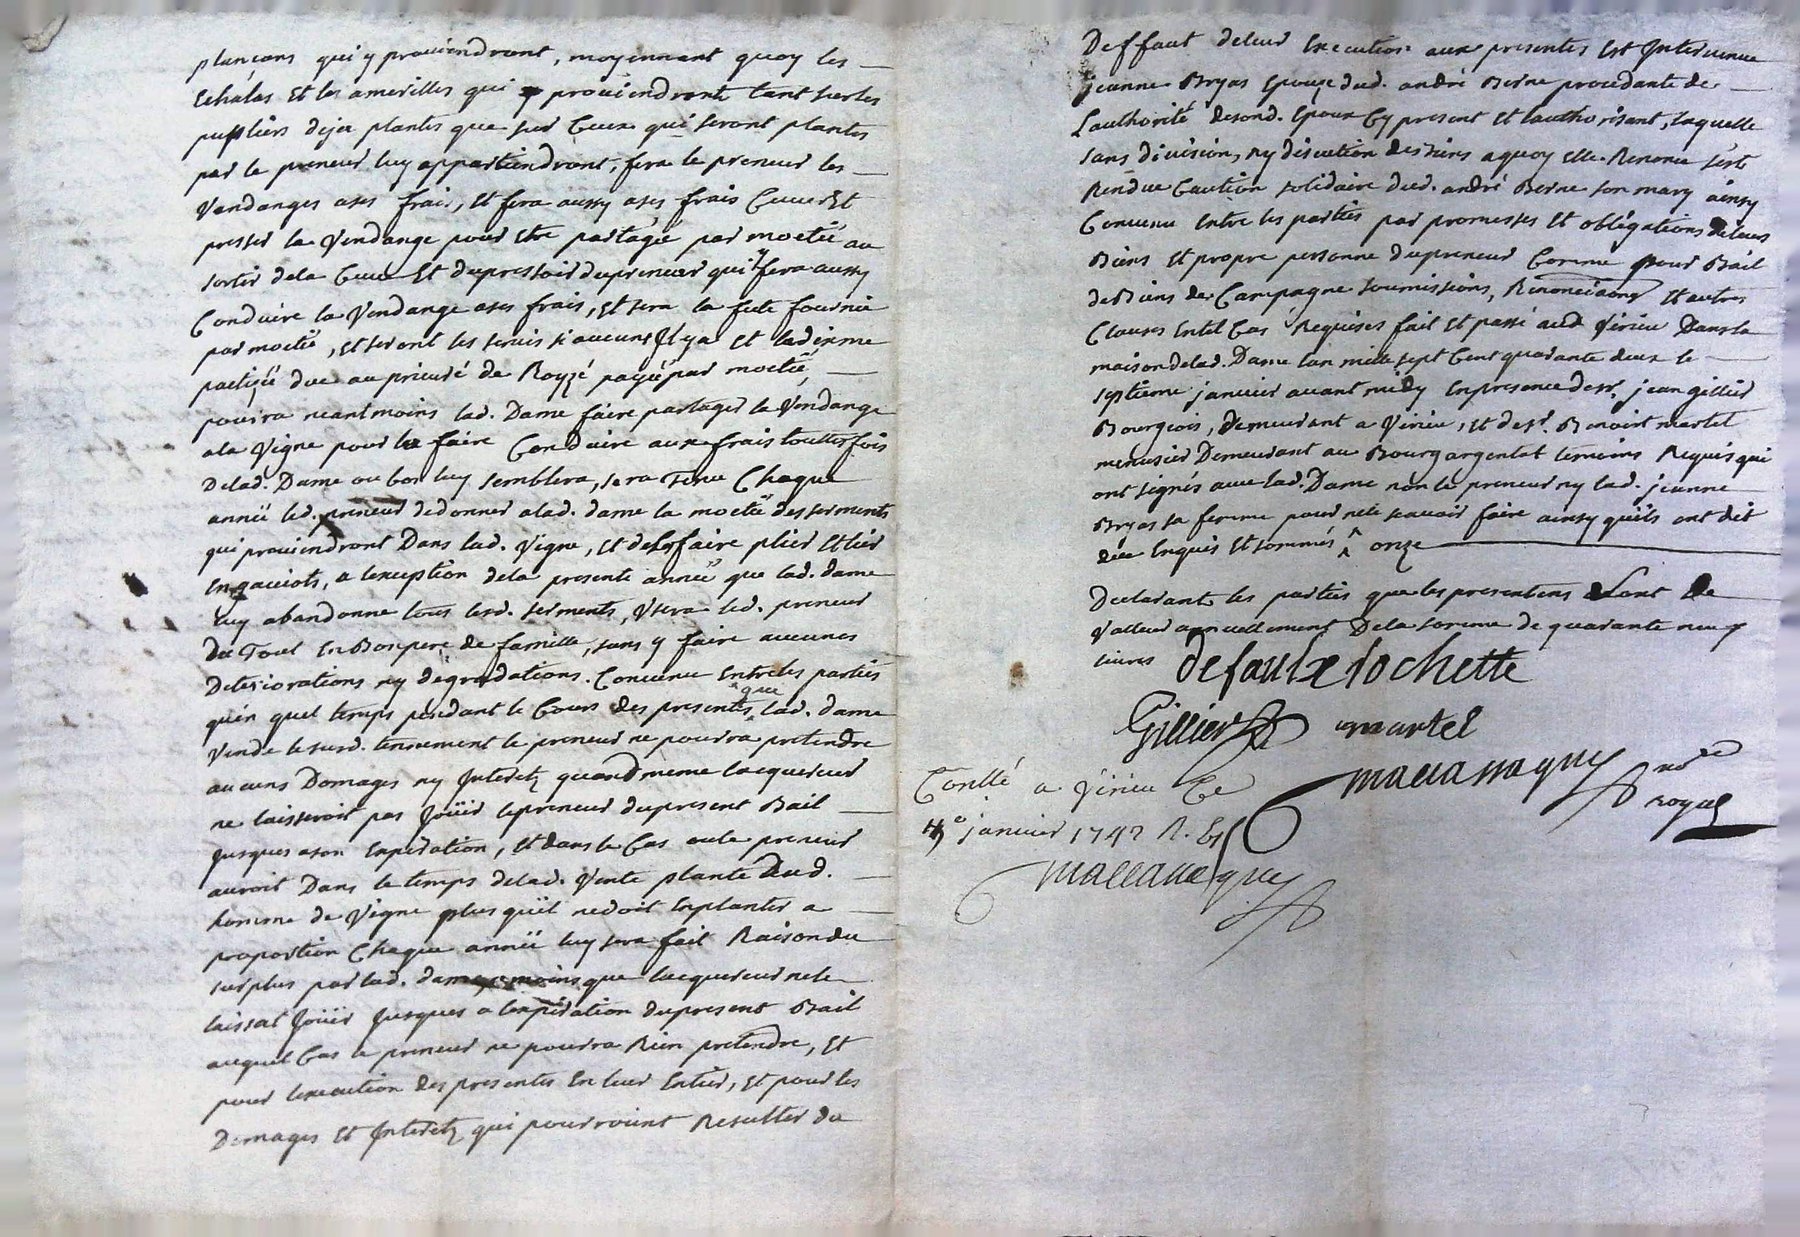 plançons qui y proviendront, moyennant quoy les
Echalas Et les amerilles qui proviendront tant sur les
pupliers deja plantes que sur Ceux qui seront plantes
par le preneur luy appartiendront, fera le preneur les
Vendanges a ses frais, Et fera aussy a ses frais Cuver Et
presser la Vendange pour Etre partagée par moetié au
sortir de la Cuve Et du pressoir du preneur qui fera aussy
Conduire la Vendange a ses frais, Et sera la fute fournie
par moetié, Et seront les servis si aucuns Il y a Et la dixme
due au prieuré de Royzé payé par moetié,
pourra neantmoins lad. Dame faire partager la Vendange
a la Vigne pour la faire Conduire aux frais touttesfois
De lad. Dame ou bon luy semblera, sera Tenu Chaque
année led. preneur de donner a lad. dame la moetié des serments
qui proviendront Dans lad. Vigne, Et de les faire plier Et lier
En gaviots, a l'exception de la presente année que lad. dame
luy abandonne tous lesd. serments, Usera led. preneur
du Tout En Bon pere de famille, sans y faire aucunes
Deteriorations ny degradations. Convenu Entre les parties
qu'en quel temps pendant le Cours des presentes que lad. dame
Vende le susd. tennement le preneur ne pourra pretendre
aucuns Domages ny Interetz quand meme l'acquereur
ne laisseroit pas Joüir le preneur du present Bail
Jusques a son Expiration, Et dans le Cas ou le preneur
auroit Dans le temps de lad. Vente planté Aud.
de Vigne plus qu'il ne doit En planter a
proportion Chaque année luy sera fait Raison du
surplus par lad. dame a moins que l'acquereur ne le
laissat Joüir Jusques a l'expiration du present Bail
auquel Cas le preneur ne pourra Rien pretendre, Et
pour l'execution des presentes En leur Entier, Et pour les
Domages Et Interetz qui pourroint Resulter du
Deffaut de leur Execution aux presentes Est Intervenue
jeanne Bryas Epouze dud. andré Berne procedante de
L'authorité de sond. Epoux Cy present Et l'authorisant, laquelle
sans division, ny discution des siens a quoy elle Renonce s'est
Rendue Caution solidaire dud. andré Berne son mary ainsy
Convenu Entre les parties par promesses Et obligations de leurs
Biens Et propre personne du preneur Comme pour Bail
de Biens de Campagne soumissions, Renonciations Et autres
Clauses En tel Cas Requises fait Et passé aud. Virieu Dans la
maison de lad. Dame l'an mille sept Cent quarante deux le
septieme janvier avant midy En presence de sr. jean gillier
Bourgeois, demeurant a Virieu, Et de sr. Benoist martel
menusier Demeurant au Bourg argental temoins Requis qui
ont signés avec lad. Dame non le preneur ny lad. jeanne
Bryas sa femme pour ne le scavoir faire ainsy qu'ils ont dit
de ce Enquis Et sommés ^ onze
Declarant les parties que les presentes sont de
Valleur annuellement De la somme de quarante neuf
livres defaulx rochette
Gillier martel
Conllé a Virieu Ce mallassagny nore
janvier 1742 R. royal
mallassagny